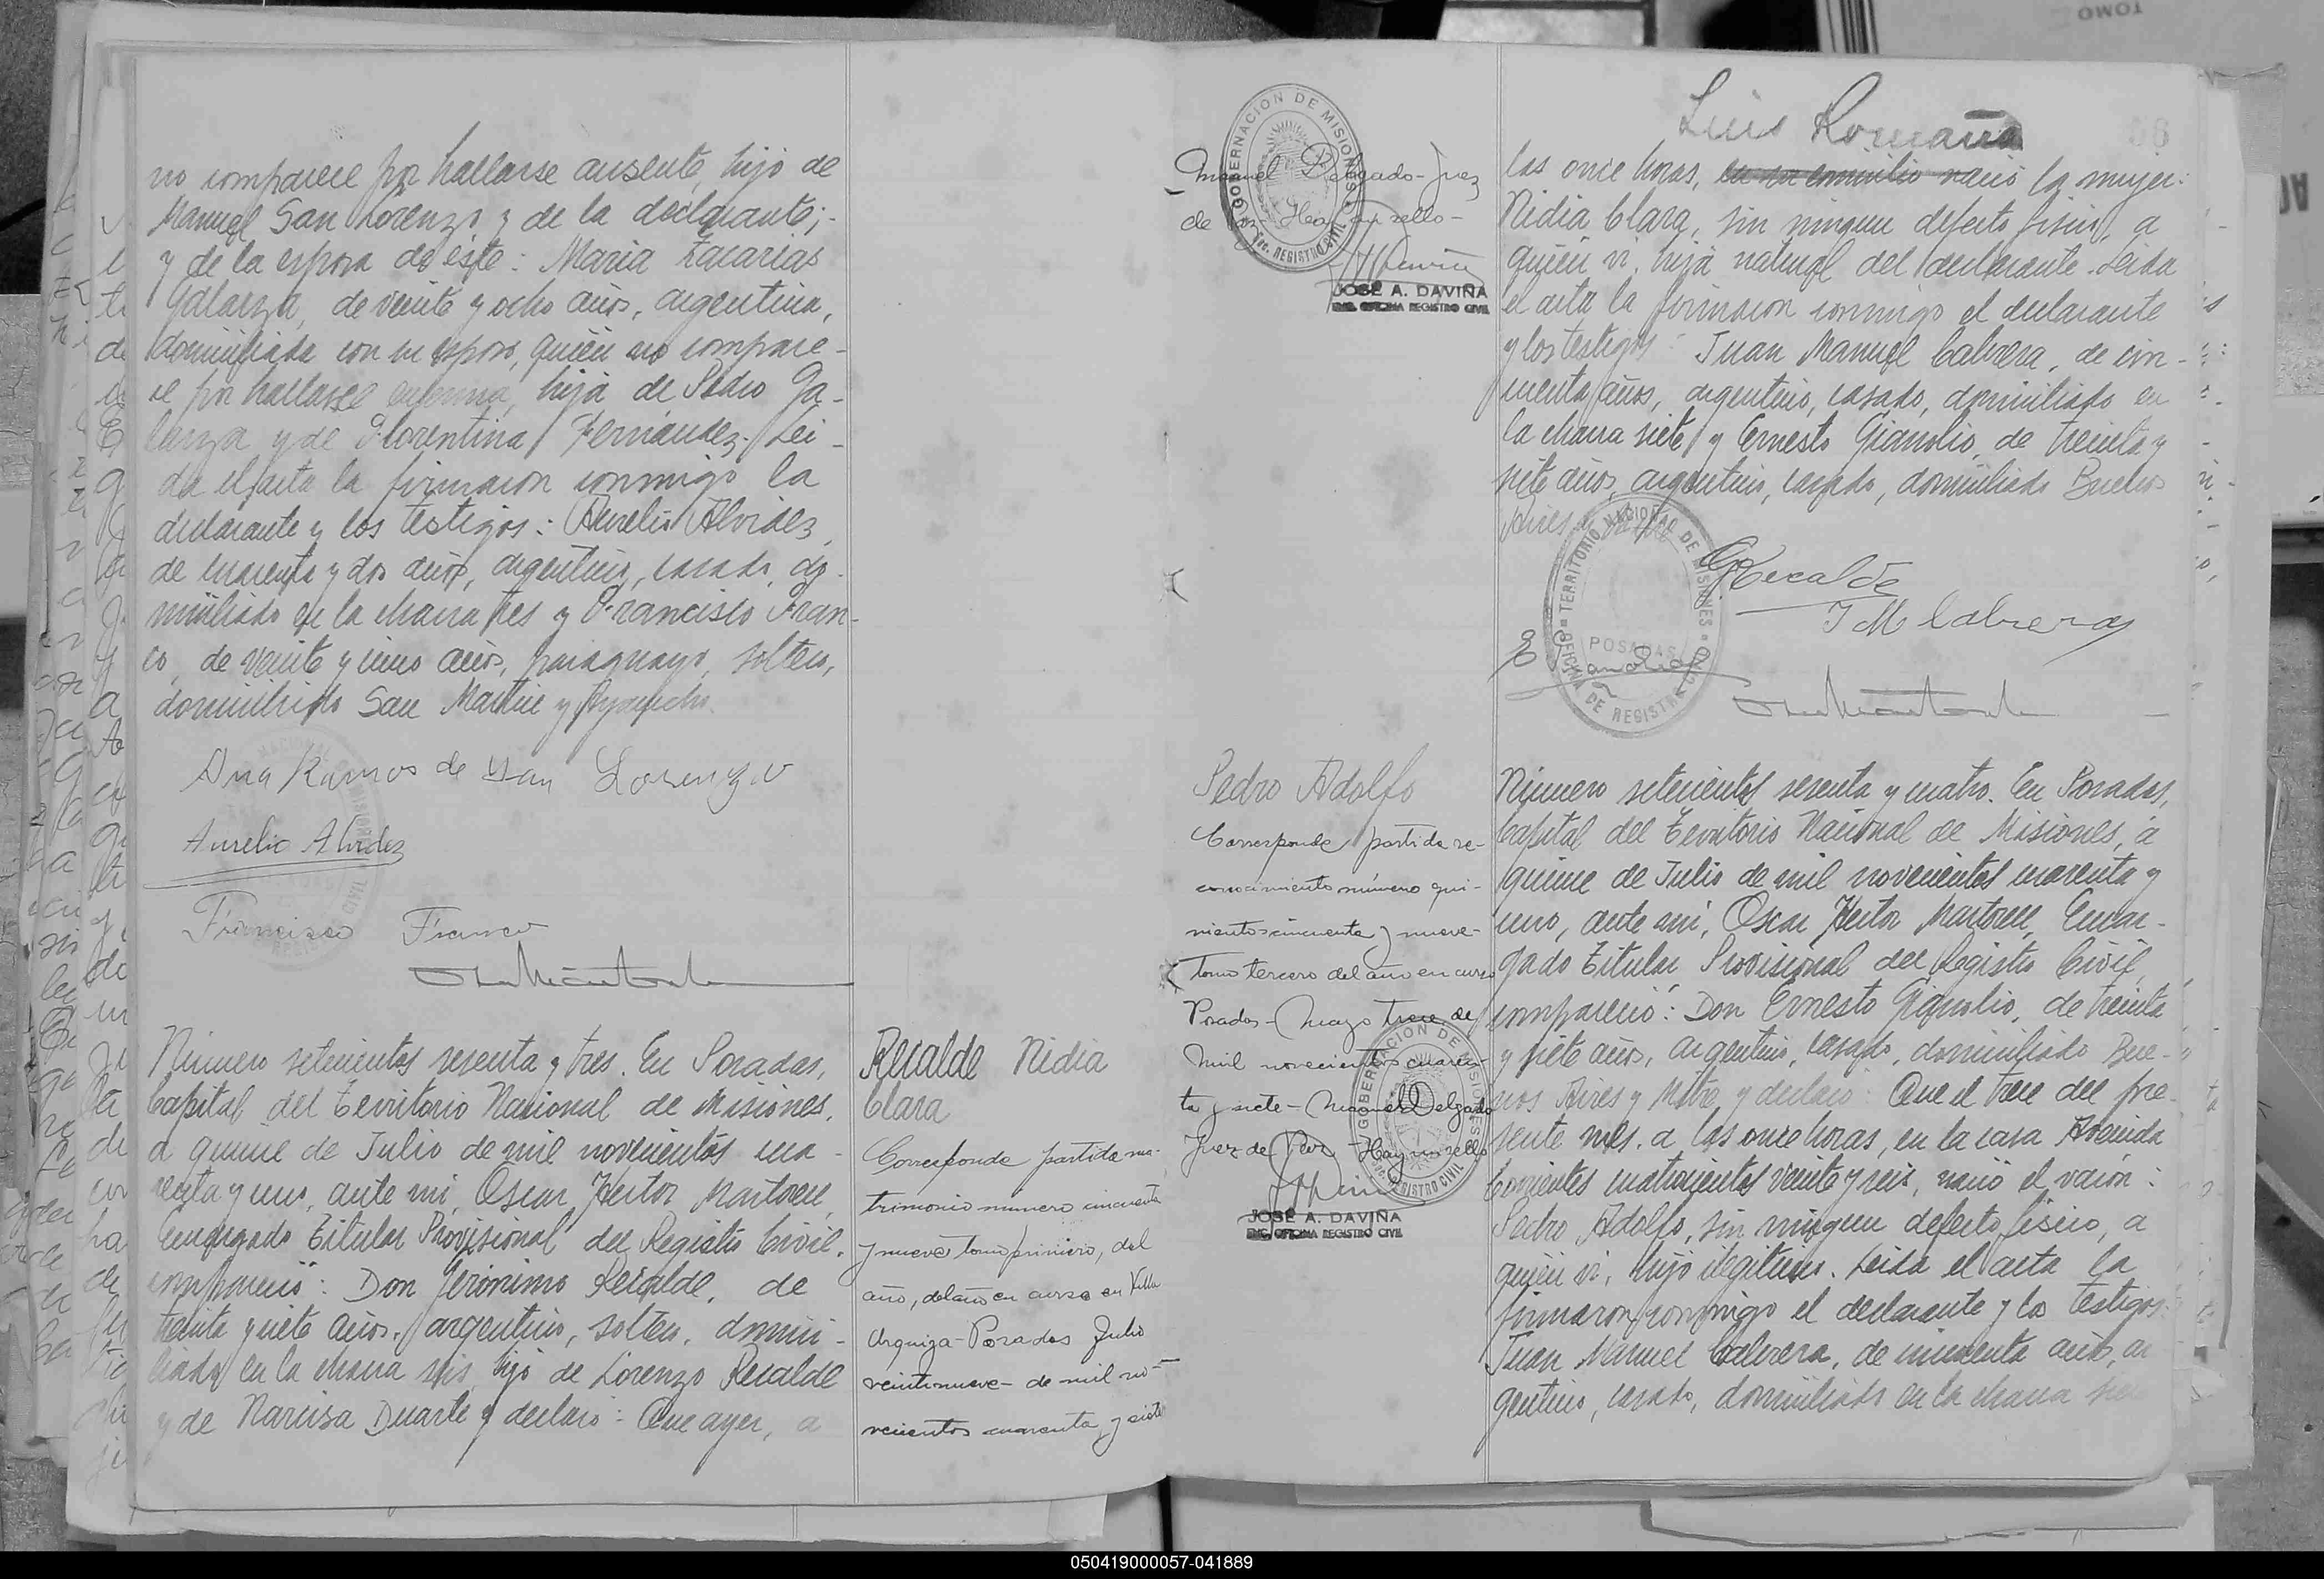 no comparece por hallarse ausente, hijo de
Manuel San Lorenzo y de la declarante;
y de la esposa de éste: Maria Zacarias
Galarza, de veinte y ocho años, argentina,
domiciliada con su esposo, quién no compare-
ce por hallarse enferma, hija de Pedro Ga-
larza y de Florentina Fernández. Lei-
da el acta la firmaron conmigo la
declarante y los testigos: Aurelio Alvidez,
de cuarenta y dos años, argentino, casado, do-
miciliado en la chacra tres y Francisco Fran-
co, de veinte y cinco años, paraguayo, soltero,
domiciliado San Martin y Ayacucho.
Ana Ramos de San Lorenzo
Aurelio Alvidez
Francisco Franco
Número setecientos sesenta y tres. En Posadas,
Capital del Territorio Nacional de Misiones,
a quince de Julio de mil novecientos cua-
renta y uno, ante mi, Oscar Hector Martorell,
Encargado Titular Provisional del Registro Civil,
compareció: Don Gerónimo Recalde, de
treinta y siete años, argentino, soltero, domici-
liado en la chacra seis, hijo de Lorenzo Recalde
y de Narcisa Duarte y declaró: Que ayer, a
Recalde Nidia
Clara
Corresponde partida ma-
trimonio número cincuenta
y nueve tomo primero, del
año, del año en curso en Villa
Urquiza - Posadas Julio
veintinueve - de mil no-
vecientos cuarenta y siete
Manuel Delgado - Juez
de Paz - Hay un sello -
GOBERNACION DE MISIONES
SEC. REGISTRO CIVIL
JOSÉ A. DAVIÑA
ENC. OFICINA REGISTRO CIVIL
Luis Romaña
las once horas, en su domicilio nació la mujer:
Nidia Clara, sin ningun defecto fisico, a
quién vi, hija natural del declarante. Leida
el acta la firmaron conmigo el declarante
y los testigos: Juan Manuel Cabrera, de cin-
cuenta años, argentino, casado, domiciliado en
la chacra siete y Ernesto Gianolio, de treinta y
siete años, argentino, casado, domiciliado Buenos
Aires y Mitre
TERRITORIO NACIONAL DE MISIONES
POSADAS
OFICINA DE REGISTRO CIVIL
G Recalde
J M Cabrera
E Gianolio
Pedro Adolfo
Corresponde partida re-
conocimiento número qui-
nientos cincuenta y nueve -
Tomo tercero del año en curso
Posadas - Mayo trece de
mil novecientos cuaren-
ta y siete - Manuel Delgado
Juez de Paz - Hay un sello
GOBERNACION DE MISIONES
REGISTRO CIVIL
JOSÉ A. DAVIÑA
ENC. OFICINA REGISTRO CIVIL
Número setecientos sesenta y cuatro. En Posadas,
Capital del Territorio Nacional de Misiones, a
quince de Julio de mil novecientos cuarenta y
uno, ante mi, Oscar Hector Martorell, Encar-
gado Titular Provisional del Registro Civil,
compareció: Don Ernesto Gianolio, de treinta
y siete años, argentino, casado, domiciliado Bue-
nos Aires y Mitre, y declaró: Que el trece del pre-
sente mes, a las once horas, en la casa Avenida
Corrientes cuatrocientos veinte y seis, nació el varón:
Pedro Adolfo, sin ningun defecto fisico, a
quién vi, hijo ilegitimo. Leida el acta la
firmaron conmigo el declarante y los testigos:
Juan Manuel Cabrera, de cincuenta años, ar
gentino, casado, domiciliado en la chacra sie
050419000057-041889